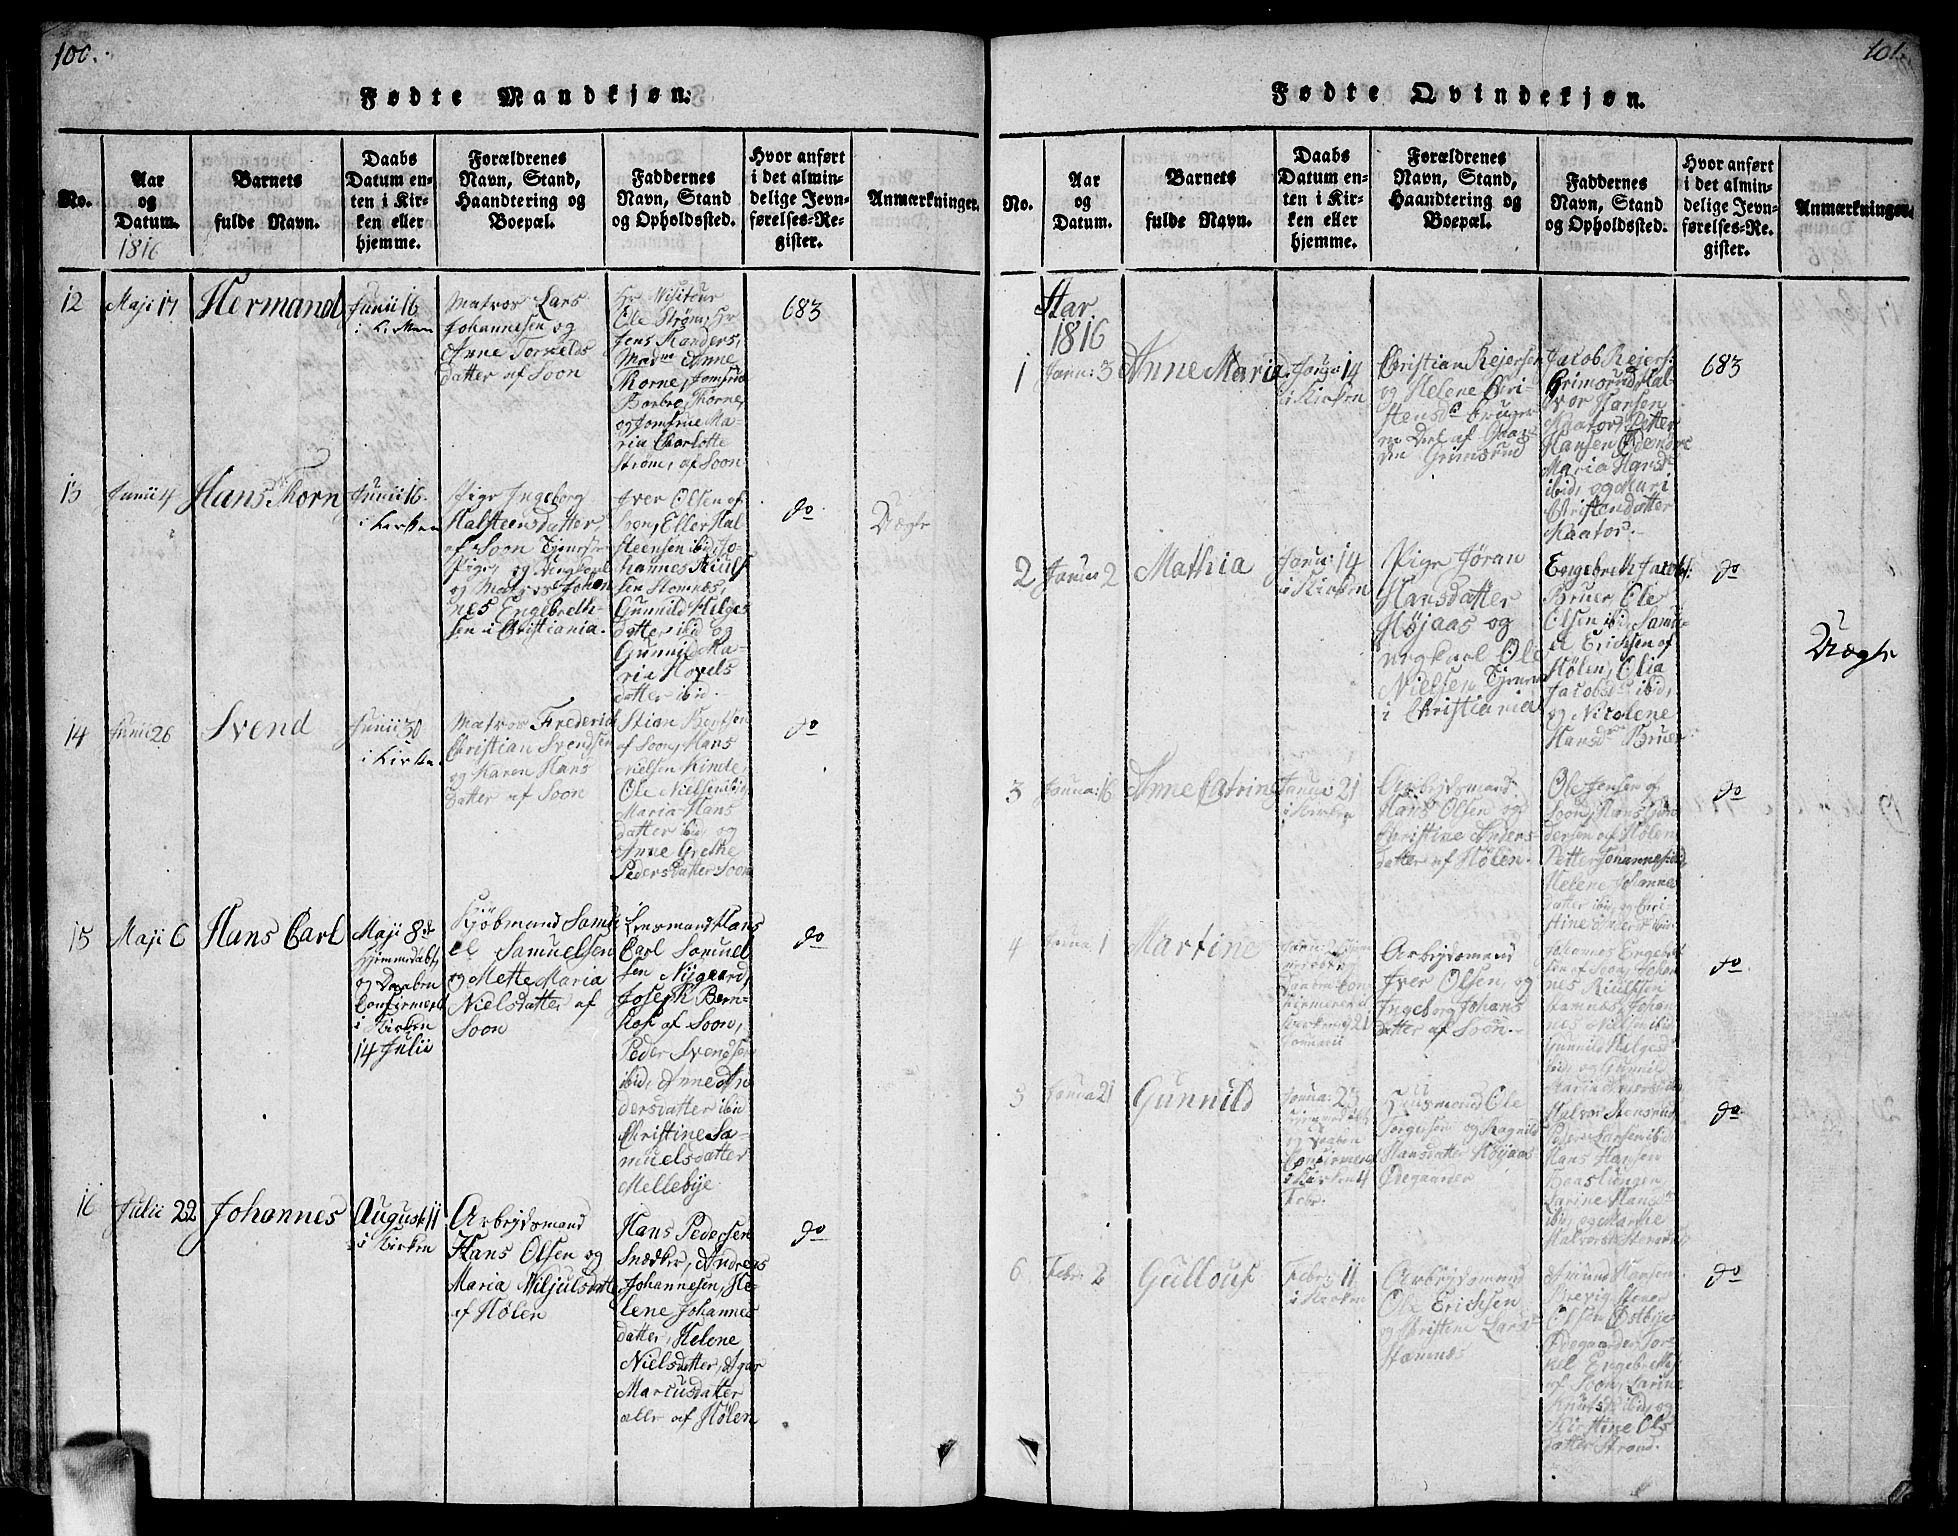 100.
Fødte Mandkjøn.
No.
Aar
og
Datum.
1816
Barnets
fulde Navn.
Daabs
Datum en-
ten i Kir-
ken eller
hjemme.
Forældrenes
Navn, Stand,
Haandtering og
Boepæl.
Faddernes
Navn, Stand
og Opholdssted.
Hvor anført
i det almin-
delige Jevn-
førelses-Re-
gister.
Anmærkninger.
12
Maji 17
Hermand
Junii 16
i Kirken
Matros Lars
Johannesen og
Anne Torvelds
datter af Soon
Hr Visiteur
Ole Strøm, Hr
Jens Randers,
Madm Anne
Thorne, Jomfrue
Barbre Thorne,
og Jomfrue Ma-
ria Charlotte
Strøm, af Soon
683
13
Junii 4
Hans Thorn
Junii 16
i Kirken
Pige Ingeborg
Halsteensdatter,
af Soon
Pige, og Ungkarl
og Matros Johan
nes Engebreth-
sen i Christiania.
Iver Olsen af
Soon, Eller Hal-
steensen ibid, Jo-
hannes Kiuls
sen Stamnes,
Gunnild Helges
datter ibid og
Gunnild Ma-
ria Hovels
datter ibid.
do
Uægte
14
Junii 26
Svend
Junii 30
i Kirken
Matros Frederic
Christian Svendsen
og Karen Hans
datter af Soon
Stian Berthsen
af Soon, Hans
Nielsen Kinde,
Ole Nielsen ibid,
Maria Hans
datter ibid, og
Anne Grethe
Pedersdatter Soon
do
15
Maji 6
Hans Carl
Maji 8de
Hjemmedøbt,
og Daaben
Confirmeret
i Kirken
14 Julii
Kjøbmand Samu
el Samuelsen
og Mette Maria
Nielsdatter af
Soon
Lensmand Hans
Carl Samuel
sen Nygaard,
Joseph Bern-
hoft af Soon,
Peder Svendsen
ibid, Anne An
dersdatter ibid
Christine Sa-
muelsdatter
Mellebye.
do
16
Julii 22
Johannes
August 11
i Kirken
Arbejdsmand
Hans Olsen og
Maria Wiljulsdatter
af Hølen
Hans Pedersen
Snædker, Andreas
Johannesen, He-
lene Johannes
datter, Helene
Nielsdatter,
Marcusdatter
alle af Hølen
do
101.
Fødte Qvindekjøn.
No.
Aar
og
Datum.
Barnets
fulde Navn.
Daabs
Datum en-
ten i Kir-
ken eller
hjemme.
Forældrenes
Navn, Stand,
Haandtering og
Boepæl.
Faddernes
Navn, Stand
og Opholdssted.
Hvor anført
i det almin-
delige Jevn-
førelses-Re-
gister.
Anmærkninger.
Aar
1816
1
Janu: 3
Anne Maria
Janu: 14
i Kirken
Christian Rejersen
og Helene Chri-
stensdr bruger
en Deel af Gaar-
den Grimsrud
Jacob Rejers:
Grimsrud, Hal-
vor Hansen
Kaatorp, Petter
Hansen
Maria Hansd
ibid, og Mari
Christensdatter
Kaator.
683
2
Janu: 2
Mathia
Janu: 14
i Kirken
Pige Jøran
Hansdatter
Højaas og
ungkarl Ole
Nielsen Tjenende
i Christiania
Engebreth Jacobs:
Bruer, Ole
Olsen ibid, Samu-
el Erichsen af
Hølen, Olia
Jacobsdr ibid,
og Nicolene
Hansdr Bruer
do
Uægte
3
Janua: 16
Anne Catrine
Janua 21
i Kirken
Arbejdsmand
Hans Olsen og
Christine Anders-
datter af Hølen.
Ole Jensen af
Soon, Hans Gun
dersen af Hølen
Petter Johannes: ibid
Helene Johannes
datter ibid, og Chri
stine Andersd ibid
do
4
Janua 1
Martine
Arbejdsmand
Iver Olsen, og
Ingeborg Johans
datter af Soon.
Johannes Engebret
sen af Soon, Johan
nes Kiulssen
Stamnes, Johan
nes Nielsen ibid
Gunnild Helgesd
ibid, og Gunnil
Maria
do
5
Janua 21
Gunnild
Janua: 23
Hjemmedøbt
og Daaben
Confirmeret
i Kirken 4
Febr.
Huusmand Ole
Jørgensen og Ragnild
Hansdatter Høyaas
Ødegaarden
Halvor Stensrud
Peder Larsen ibid
Hans Hansen
Baaslungen
Karine Hansd
ibid, og Marthe
Halvorsd Stensrud
do
6
Febr: 2
Gullou
Febr: 11
i Kirken
Arbejdsmand
Ole Erichsen
og Christine Larsd
Stamnes
Amund Hansen
Brevig,
Olsen Østbye
Ødegaarden, Tors
kel Engebrets:
af Soon, Karine
Knudsd ibid, og
Kirstine Ols
datter Strand.
do